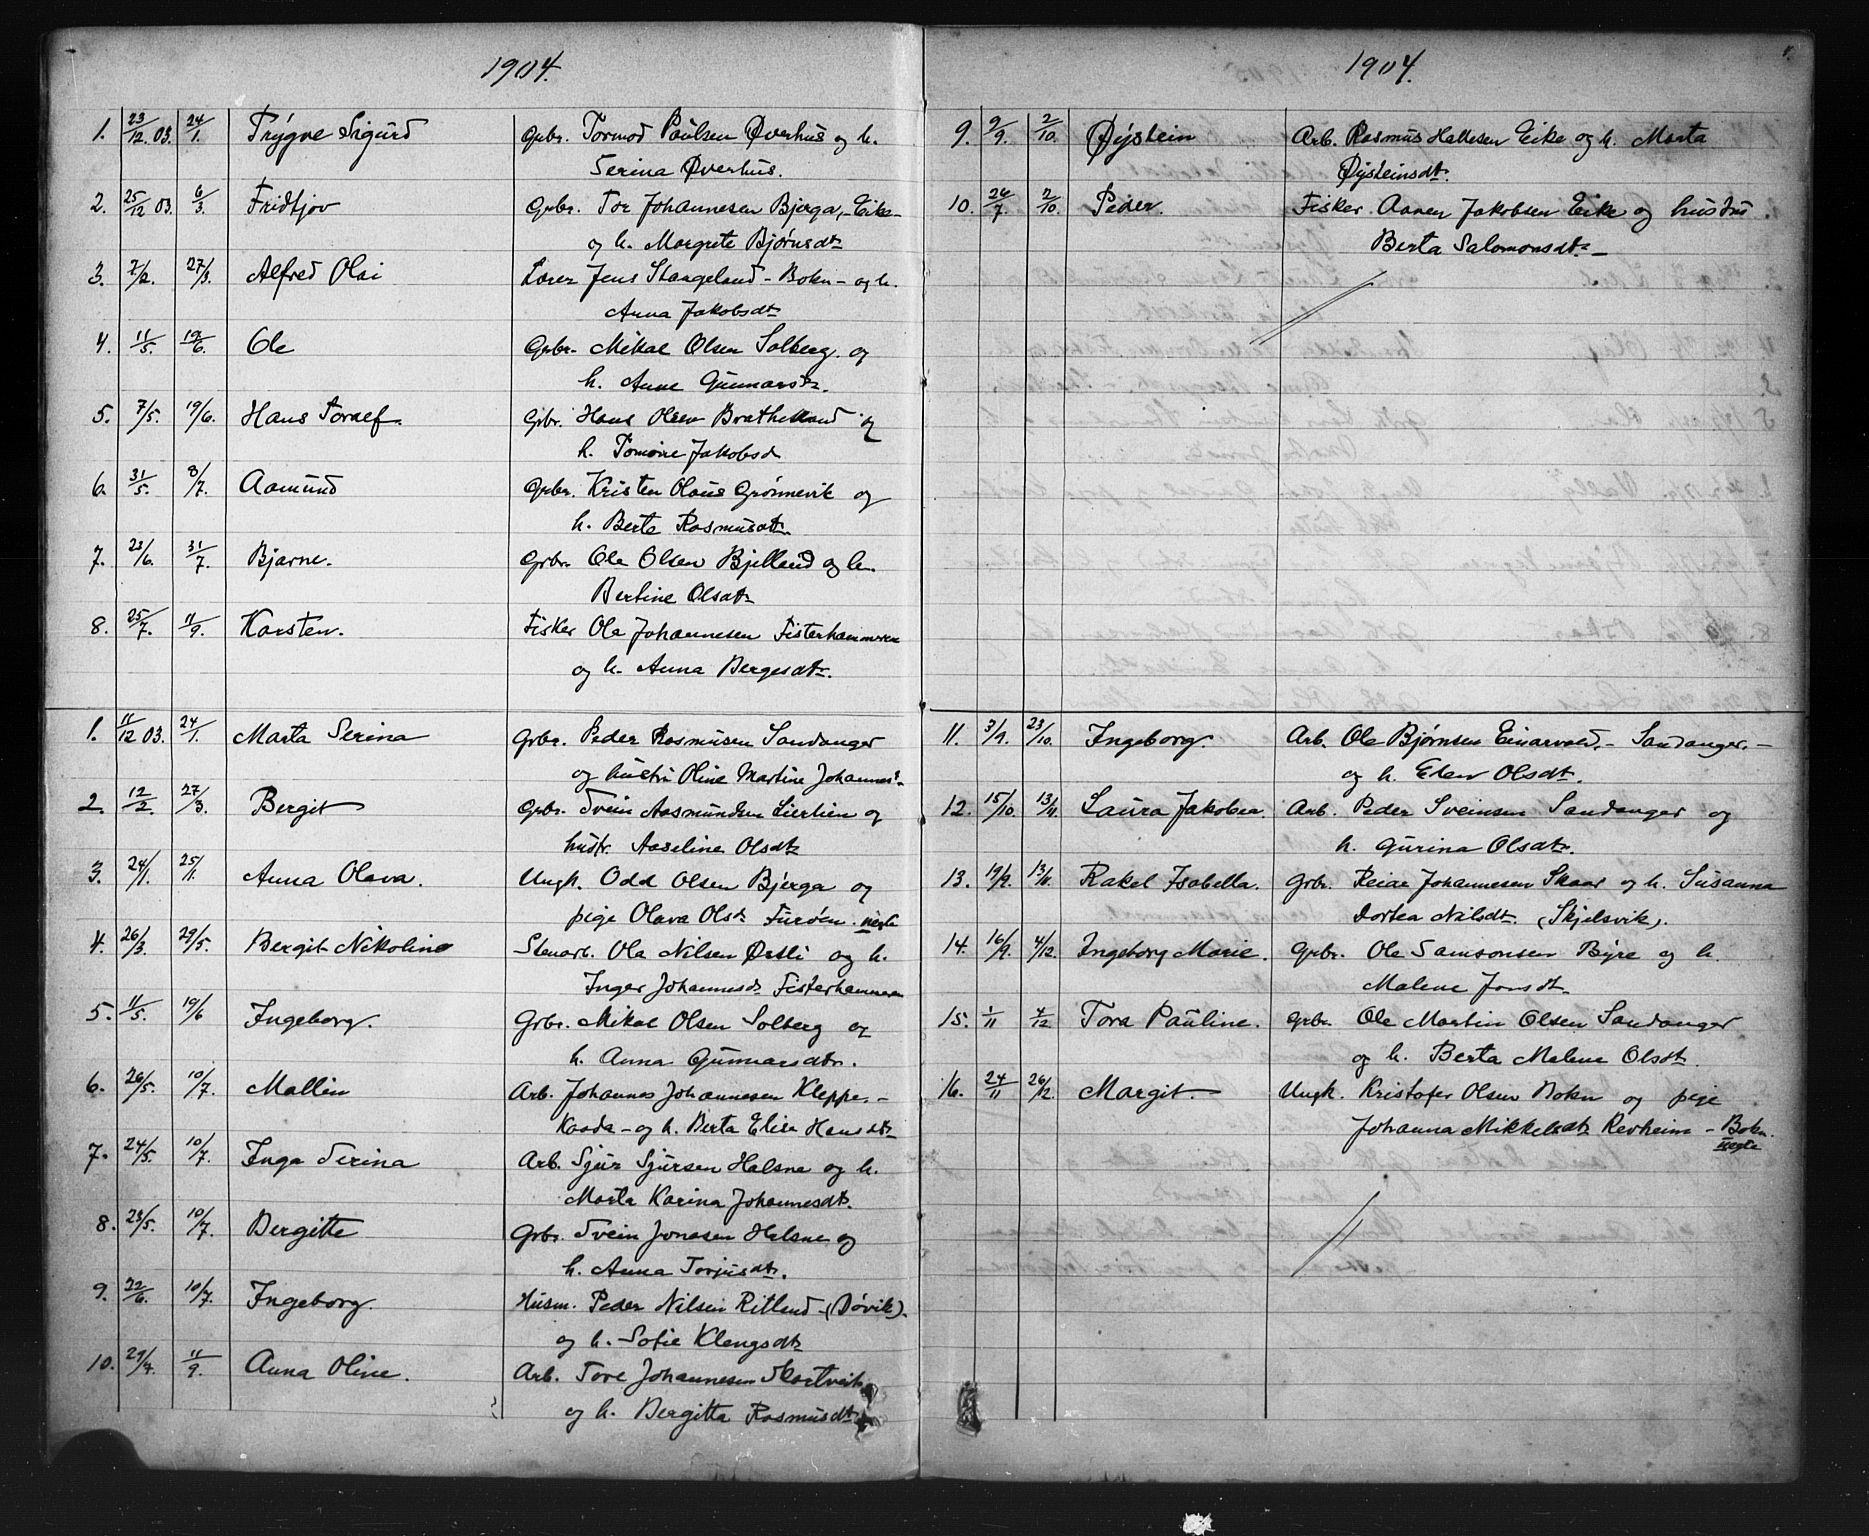 1904.
1. 23/12 03. 24/1. Trygve Sigurd Grbr. Tormod Paulsen Øverhus og h.
Serina Øverhus.
2. 25/12 03. 6/3. Fridtjov Grbr. Tor Johannesen Bjerga, - Eike -
og h. Margrete Bjørnsdtr
3. 7/2. 27/3. Alfred Olai Lærer Jens Staageland - Bokn - og h.
Anna Jakobsdtr
4. 11/5. 19/6. Ole Grbr. Mikal Olsen Solberg og
h. Anne Gunnarsdtr.
5. 7/5. 19/6. Hans Toralf. Grbr. Hans Olsen Bratheland og
h. Tomine Jakobsd
6. 31/5. 3/7. Aamund Grbr. Kristen Olaus Grønnevik og
h. Berte Rasmusdtr.
7. 23/6. 31/7. Bjarne. Grbr. Ole Olsen Bjelland og h.
Bertine Olsdtr
8. 25/7. 11/9. Karsten. Fisker Ole Johannesen Fisterhammeren
og h. Anna Bergesdtr.
1. 11/12 03. 24/1. Marta Serina Grbr. Peder Rasmusen Sandanger
og hustru Oline Martine Johannesd.
2. 12/2. 27/3. Bergit Grbr. Svein Aasmundsen Lierlien og
hustr. Aaseline Olsdtr
3. 24/1. 25/1. Anna Olava. Ungk. Odd Olsen Bjerga og
pige Olava Olsdr Furøen. uægte
4. 26/3. 29/5. Bergit Nikoline Stenarb. Ole Nilsen Østli og h.
Inger Johannesdr Fisterhammeren
5. 11/5. 19/6 Ingeborg. Grbr. Mikal Olsen Solberg og
h. Anna Gunnarsdtr.
6. 26/5. 10/7. Mallin Arb. Johannes Johannesen Kleppe. -
Kaada - og h. Berta Elisa Hansdtr
7. 24/5. 10/7. Inga Serina Arb. Sjur Sjursen Halsne og h.
Marta Karina Johannesdtr.
8. 23/5. 10/7. Bergitte Grbr. Svein Jonasen Halsne og
h. Anna Torjusdtr.
9. 22/6. 10/7. Ingeborg. Husm. Peder Nilsen Ritland - (Døvik).
og h. Sofie Klengsdtr
10. 29/7. 11/9. Anna Oline. Arb. Tore Johannesen Hortveit
og h. Bergitta Rasmusdtr
1904.
9. 9/9. 2/10. Øystein Arb. Rasmus Hallesen Eike og h. Marta
Øysteinsdtr.
10. 26/7 2/10. Peder. Fisker Aanen Jakobsen Eike og hustru
Berta Salomonsdtr. -
11. 3/9. 23/10. Ingeborg. Arb. Ole Bjørnsen Einarvold. - Sandanger. -
og h. Elen Olsdtr.
12. 15/10. 13/11. Laura Jakobea. Arb. Peder Sveinsen Sandanger og
h. Gurina Olsdtr.
13. 19/9. 13/11. Rakel Isabella. Grbr. Reiar Johannesen Skaar og h. Susanna
Dortea Nilsdtr. (Skjelsvik).
14. 16/9. 4/12. Ingeborg Marie. Grbr. Ole Samsonsen Byre og h.
Malene Jonsdtr.
15. 1/11 4/12. Tora Pauline. Grbr. Ole Martin Olsen Sandanger
og h. Berta Malene Olsdtr.
16. 24/11 26/12. Margit. Ungk. Kristofer Olsen Bokn og pige
Johanna Mikkelsdtr Revheim - Bokn.
uægte